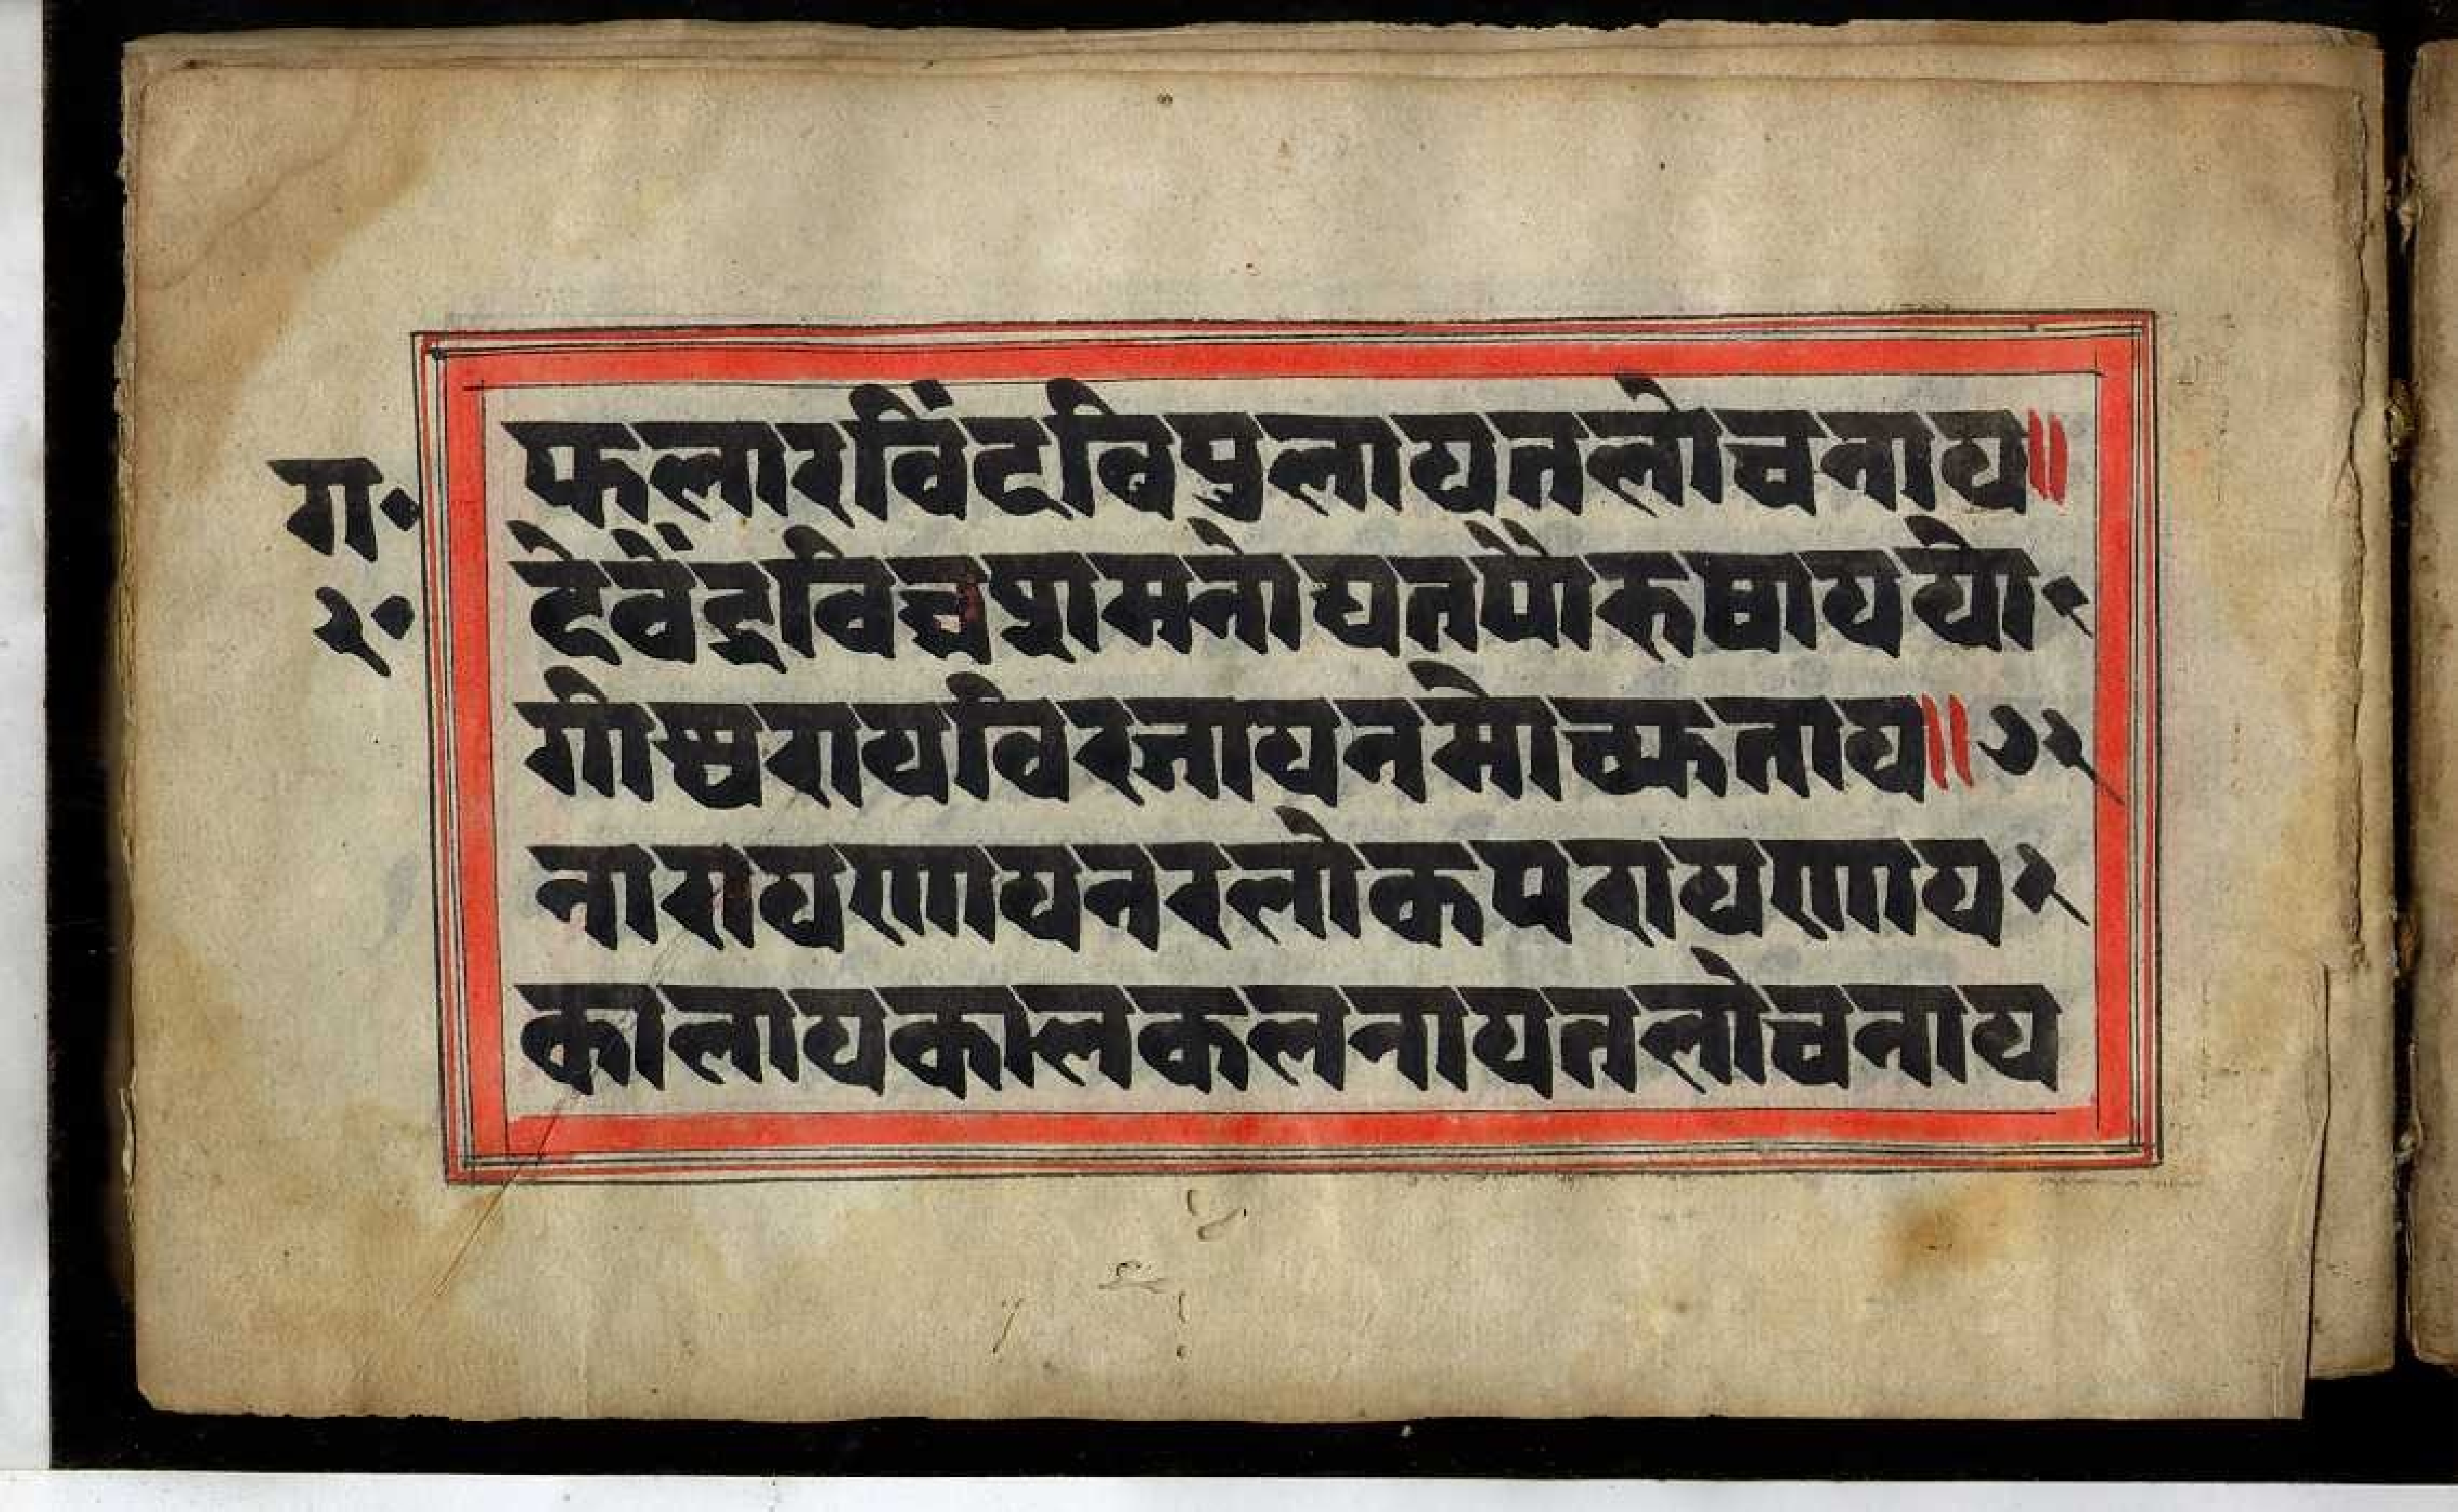 फलारविंदविपुलायतलोचनाय॥
ग॰
देवेंद्रविघ्नशमनोद्यतपौरुषाययो॰
२॰
गीश्वरायविरजायनमोच्युताय॥ १
नारायणायनरलोकपरायणाय
कालायकालकलनायतलोचनाय